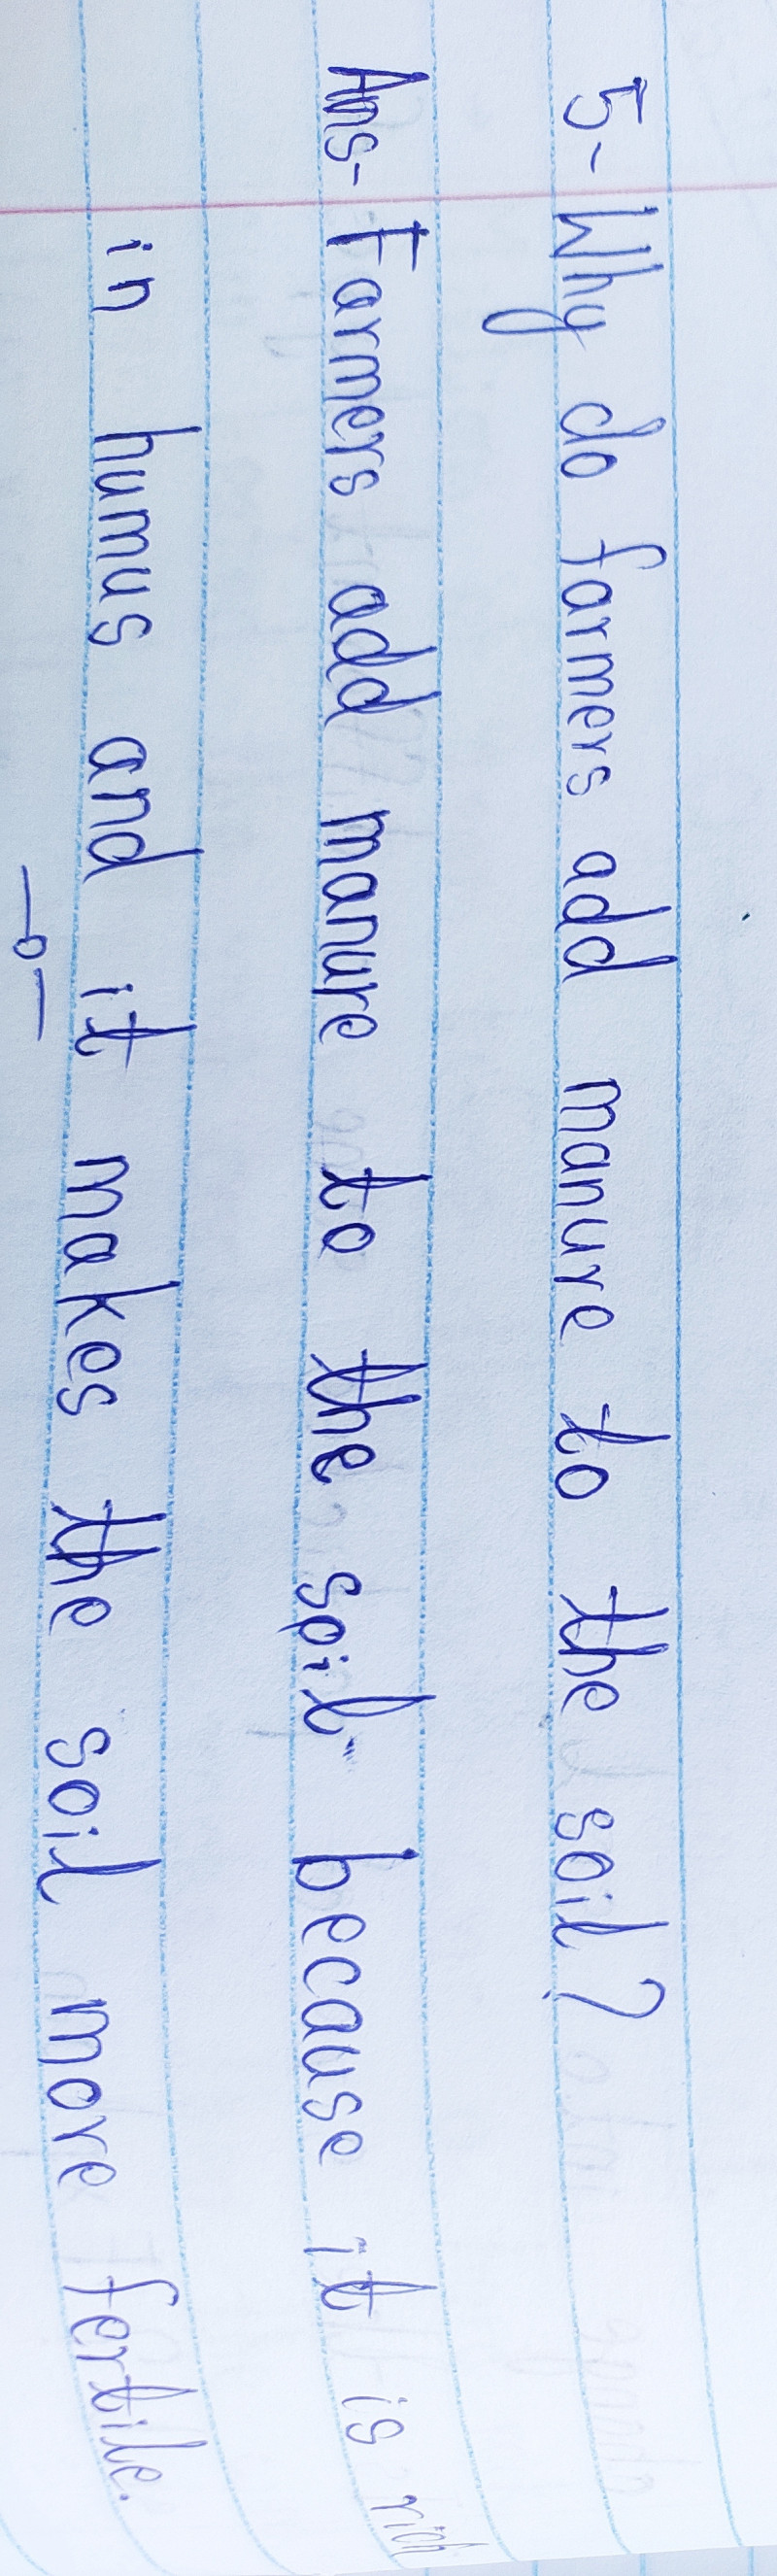 5- Why do farmers add manure to the soil?
Ans- Farmers add manure to the soil because it is rich
in humus and it makes the soil more fertile.
—o—